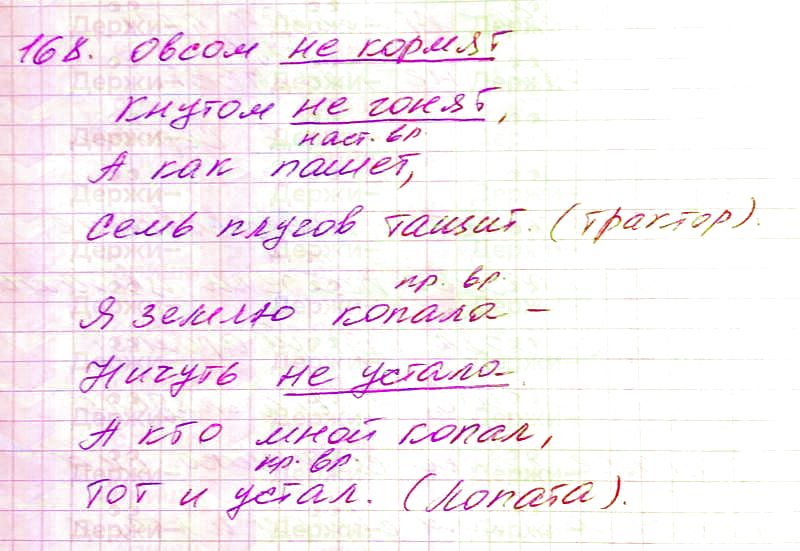 168. Овсом не кормят
Кнутом не гонят,
наст. вр.
А как пашет,
Семь плугов тащит. (Трактор).
пр. вр.
Я землю копала –
Ничуть не устала.
А кто мной копал,
пр. вр.
Тот и устал. (Лопата).